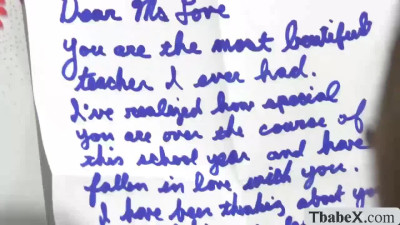 Dear Ms Love
You are the most beautiful
teacher I ever had.
I've realized how special
you are over the course of
this school year and have
fallen in love with you.
I have been thinking about you
TbabeX.com